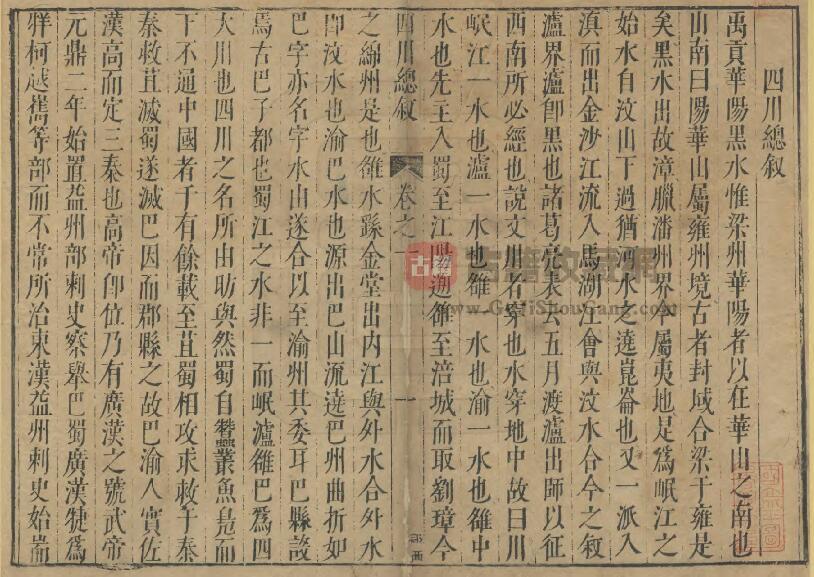 四川總敘
禹貢華陽黑水惟梁州華陽者以在華山之南也
山南曰陽華山屬雍州境古者封域合梁于雍是
矣黑水出故漳臘潘州界今屬夷地是爲岷江之
始水自汶山下過猶河水之遶崑崙也又一派入
滇而出金沙江流入馬湖江會與汶水合今之叙
瀘界瀘卽黑也諸葛亮表云五月渡瀘出師以征
西南所必經也說文川者穿也水穿地中故曰川
岷江一水也瀘一水也雒一水也渝一水也雒中
水也先主入蜀至江陽遡雒至涪城而取劉璋今
四川總敘
卷之一
一
之綿州是也雒水繇金堂出內江與外水合外水
卽汶水也渝巴水也源出巴山流遶巴州曲折如
巴字亦名字水山遂合以至渝州其委耳巴縣設
焉古巴子都也蜀江之水非一而岷瀘雒巴爲四
大川也四川之名所由昉與然蜀自蠶叢魚鳧而
下不通中國者千有餘載至苴蜀相攻求救于秦
秦救苴滅蜀遂滅巴因而郡縣之故巴渝人實佐
漢高而定三秦也高帝卽位乃有廣漢之號武帝
元鼎二年始置益州部刺史察舉巴蜀廣漢犍爲
牂柯越嶲等部而不常所治東漢益州刺史始崙
古籍
古籍收藏網
www.GujiShouCang.com